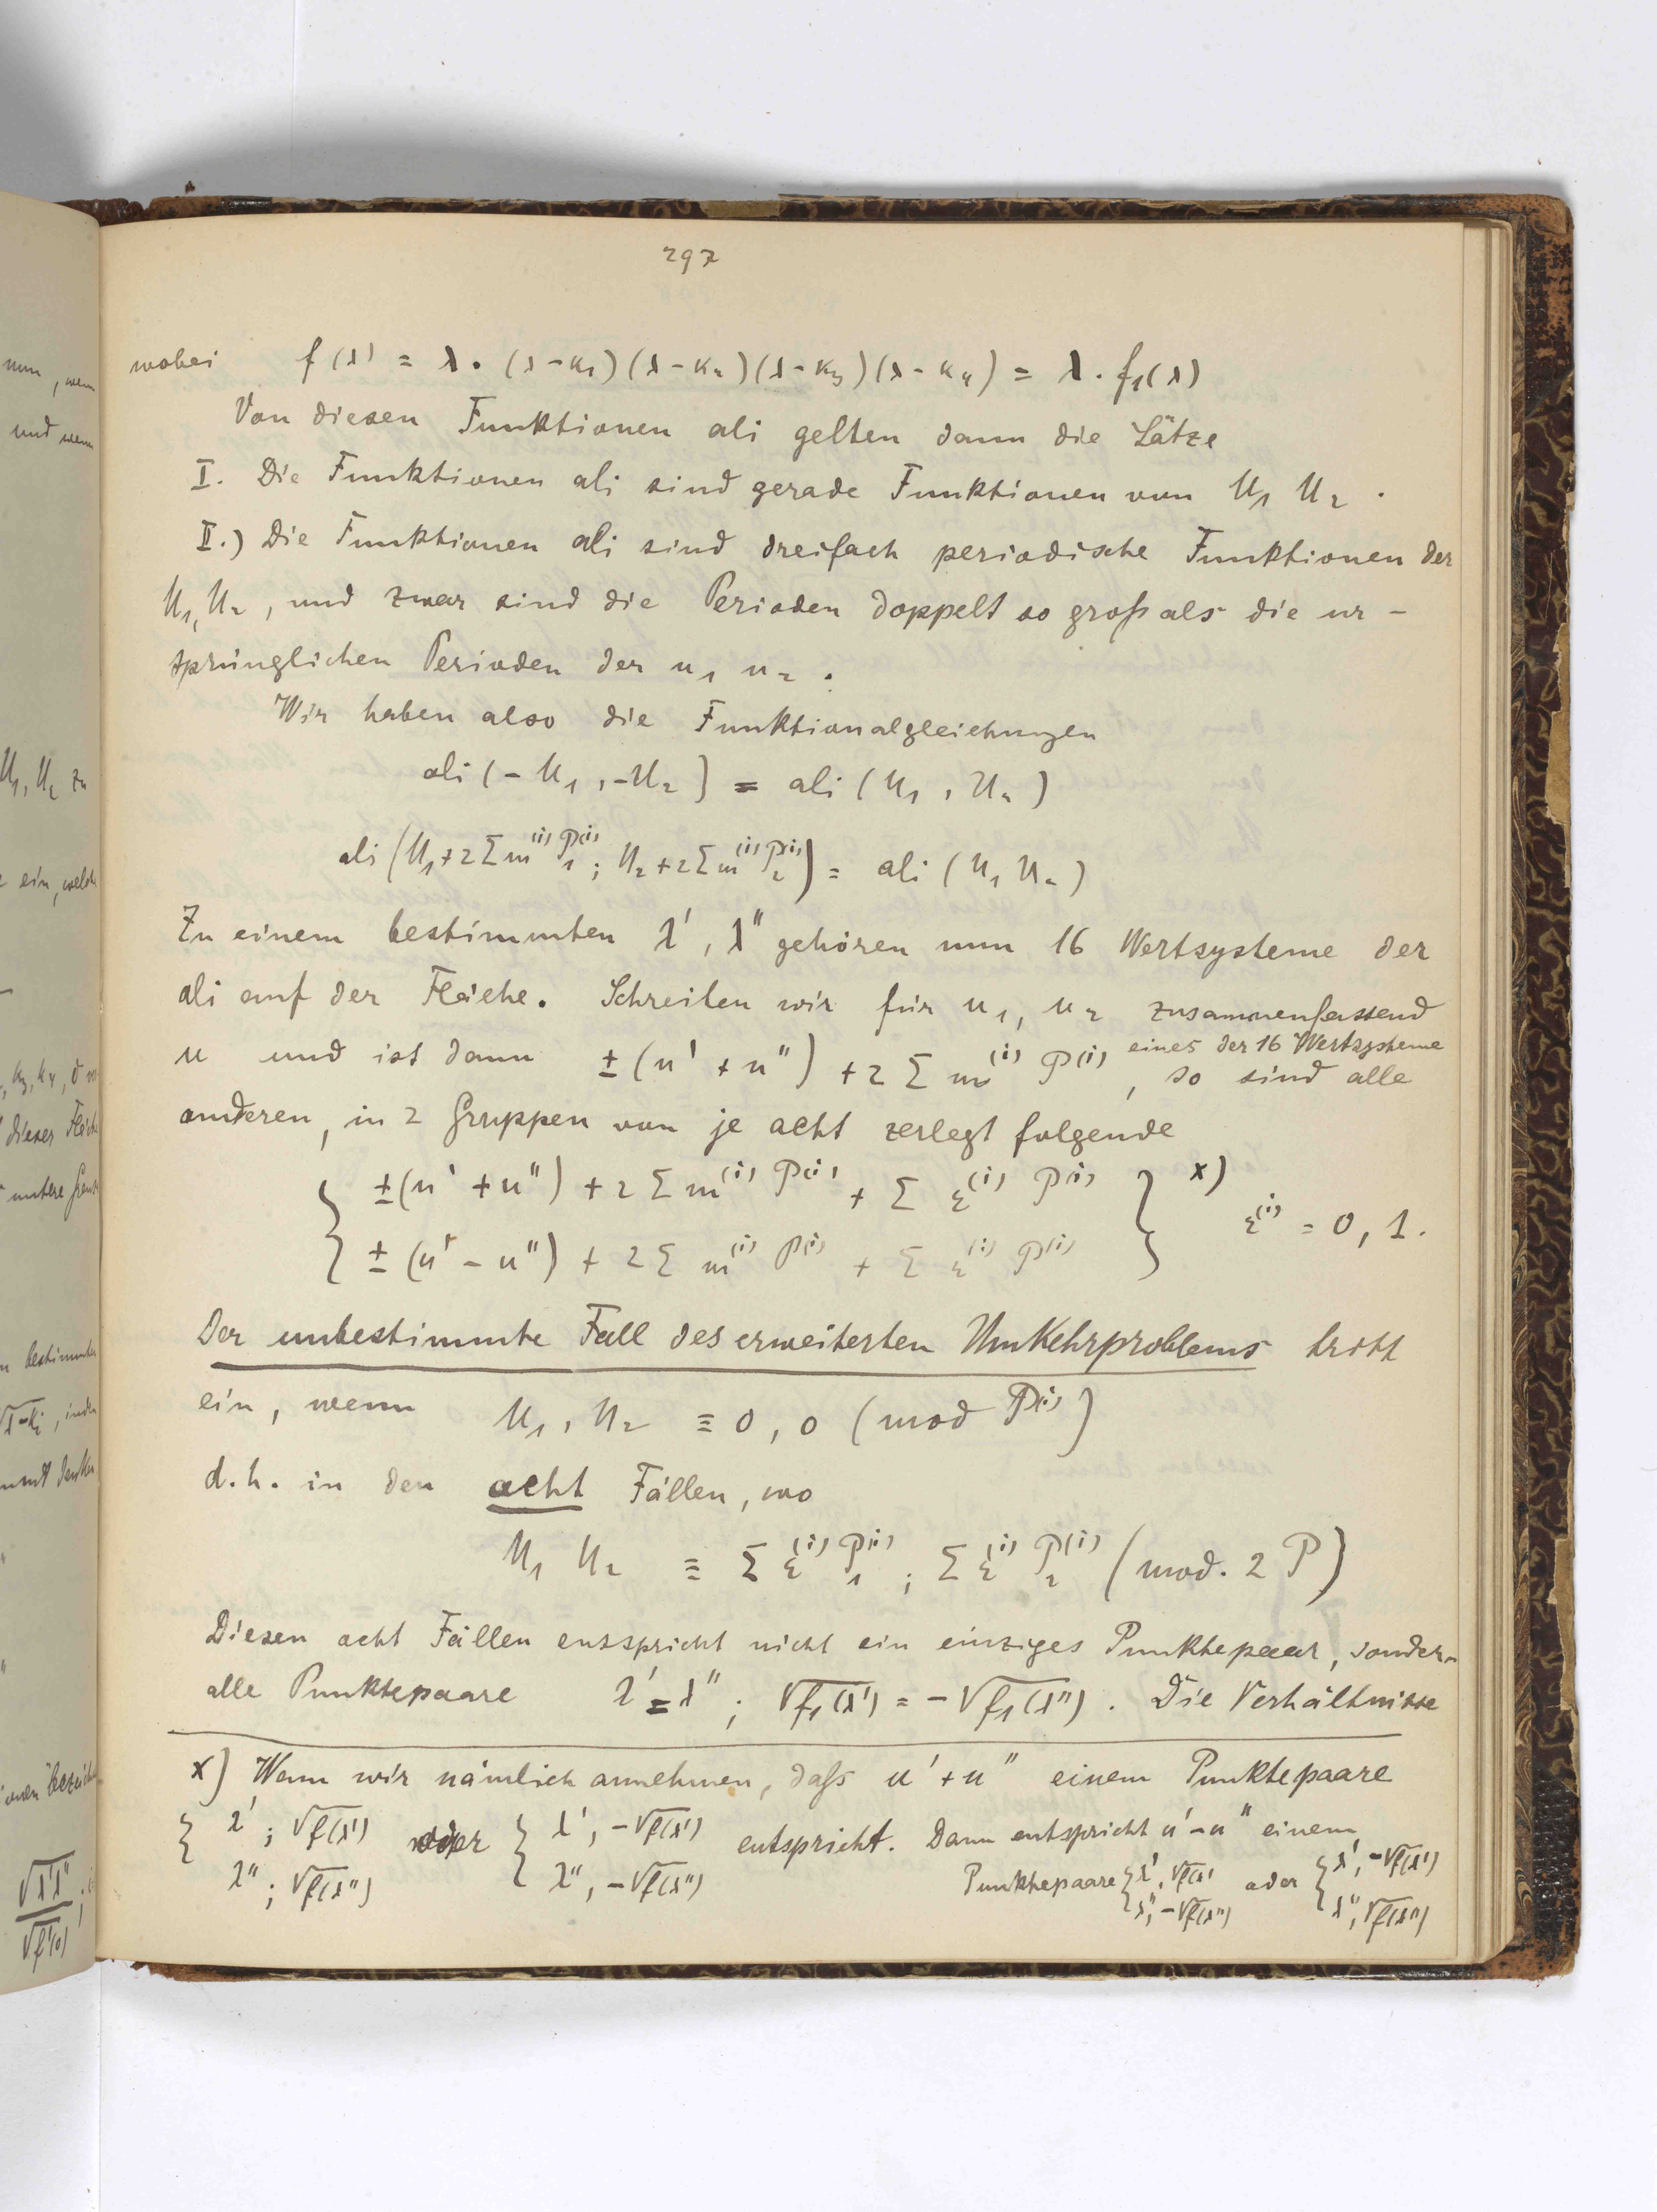 297
wobei f(λ) = λ . (λ-κ₁)(λ-κ₂)(λ-κ₃)(λ-κ₄) = λ . f₁(λ)
Von diesen Funktionen ali gelten dann die Sätze
I. Die Funktionen ali sind gerade Funktionen von U₁ U₂ .
II.) Die Funktionen ali sind dreifach periodische Funktionen der
U₁, U₂ , und zwar sind die Perioden doppelt so groß als die ur-
sprünglichen Perioden der u₁ u₂ .
Wir haben also die Funktionalgleichungen
ali (-U₁ , -U₂) = ali (U₁ , U₂)
ali (U₁+2Σm⁽ⁱ⁾P₁⁽ⁱ⁾ ; U₂+2Σm⁽ⁱ⁾P₂⁽ⁱ⁾) = ali (U₁ U₂)
Zu einem bestimmten λ', λ'' gehören nun 16 Wertsysteme der
ali auf der Fläche. Schreiben wir für u₁, u₂ zusammenfassend
u und ist dann ±(u' + u'') + 2 Σ m⁽ⁱ⁾ P⁽ⁱ⁾ , eines der 16 Wertsysteme so sind alle
anderen, in 2 Gruppen von je acht zerlegt folgende
{ ±(u' + u'') + 2 Σ m⁽ⁱ⁾ P⁽ⁱ⁾ + Σ ε⁽ⁱ⁾ P⁽ⁱ⁾ } x) ε⁽ⁱ⁾ = 0, 1.
± (u' - u'') + 2 Σ m⁽ⁱ⁾ P⁽ⁱ⁾ + Σ ε⁽ⁱ⁾ P⁽ⁱ⁾
Der unbestimmte Fall des erweiterten Umkehrproblems tritt
ein, wenn U₁, U₂ ≡ 0, 0 (mod P⁽ⁱ⁾)
d.h. in den acht Fällen, wo
U₁ U₂ ≡ Σ ε⁽ⁱ⁾ P₁⁽ⁱ⁾ ; Σ ε⁽ⁱ⁾ P₂⁽ⁱ⁾ (mod. 2 P)
Diesen acht Fällen entspricht nicht ein einziges Punktepaar, sondern
alle Punktepaare λ' = λ'' ; √f₁(λ') = -√f₁(λ'') . Die Verhältnisse
x) Wenn wir nämlich annehmen, daſs u' + u'' einem Punktepaare
{ λ' ; √f(λ') oder { λ', -√f(λ') entspricht. Dann entspricht u' - u'' einem
λ'' ; √f(λ'') λ'', -√f(λ'') Punktepaare { λ', √f(λ') oder { λ', -√f(λ')
λ'', -√f(λ'') λ'', √f(λ'')